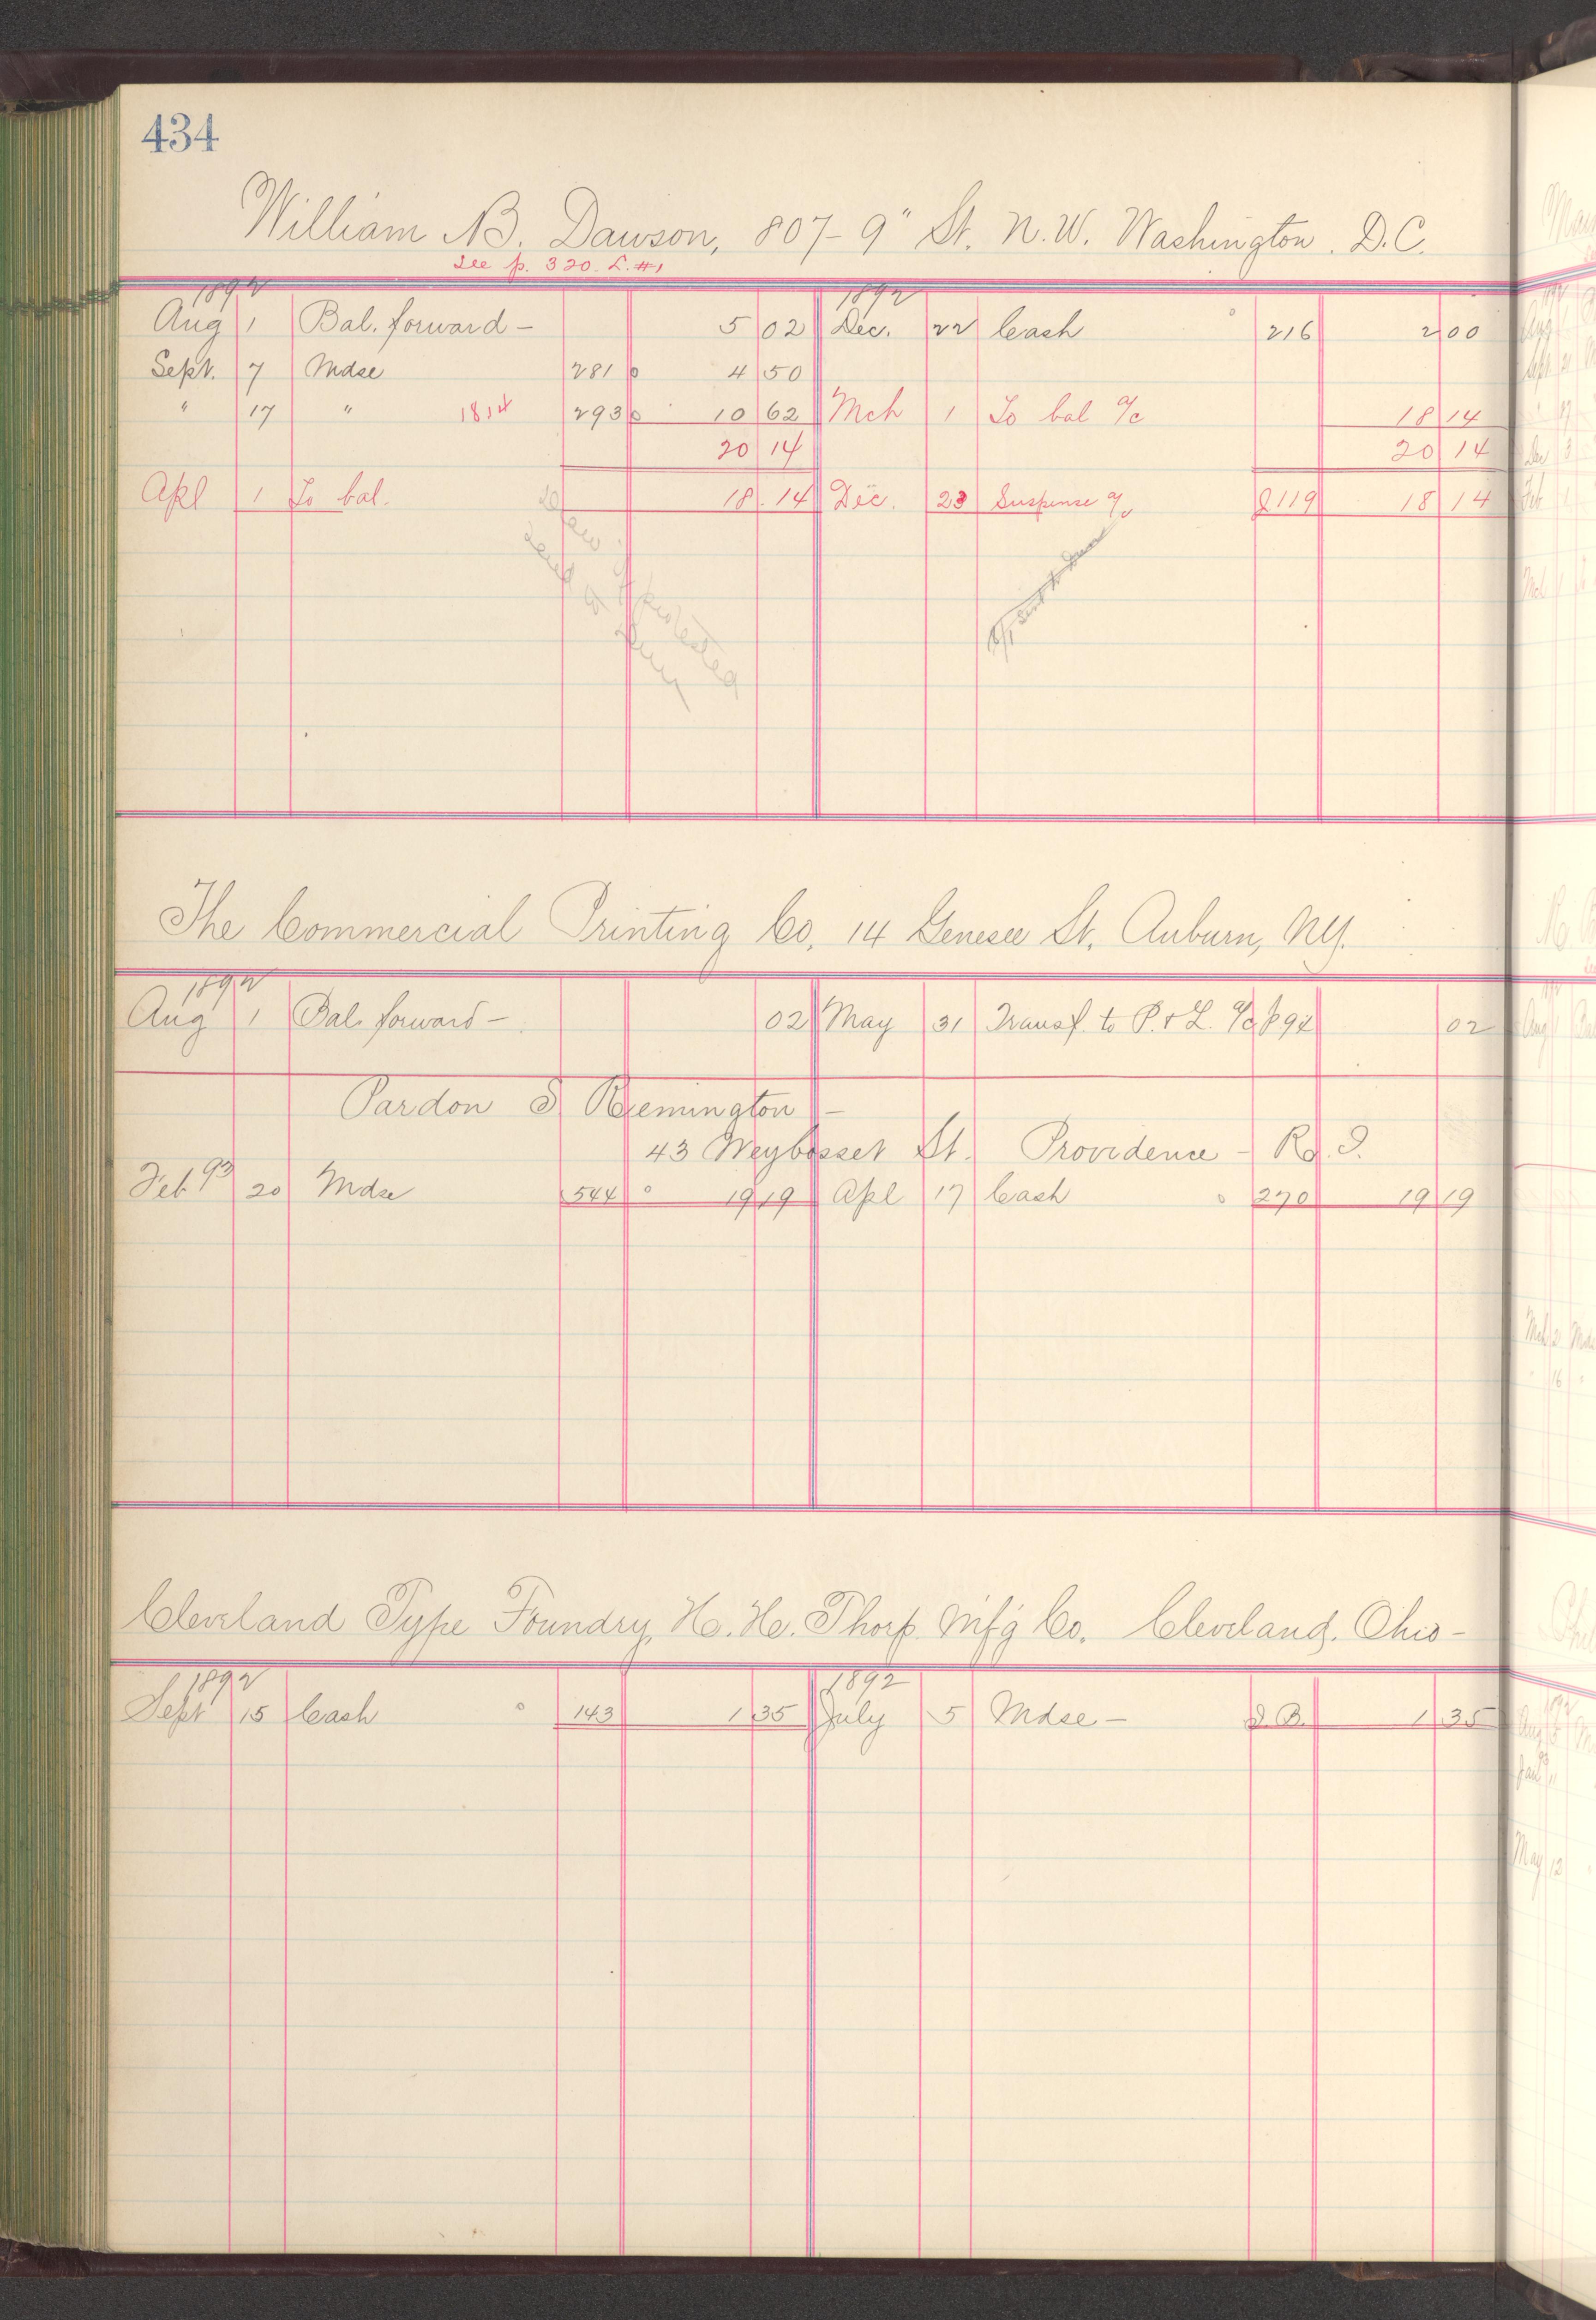 434
William B. Dawson, 807-9" St. N.W. Washington. D.C.
See p. 320. L. #1
1892 1892
Aug 1 Bal. forward - 5 02 Dec. 22 Cash 216 2 00
Sept. 7 Mdse 281 4 50
" 17 " 1814 293 10 62 Mch 1 To bal a/c 18 14
20 14 20 14
Apl 1 To bal. 18.14 Dec. 23 Suspense a/c J119 18 14
The Commercial Printing Co. 14 Genesee St. Auburn, N.Y.
1892
Aug 1 Bal. forward - 02 May 31 Transf. to P. & L. a/c J92 02
Pardon S Remington -
43 Weybosset St. Providence - R.I.
Feb 93 20 Mdse 544 19 19 Apl 17 Cash 270 19 19
Cleveland Type Foundry, H. H. Thorp Mfg Co. Cleveland. Ohio -
1892 1892
Sept 15 Cash 143 1 35 July 5 Mdse - J.B. 1 35